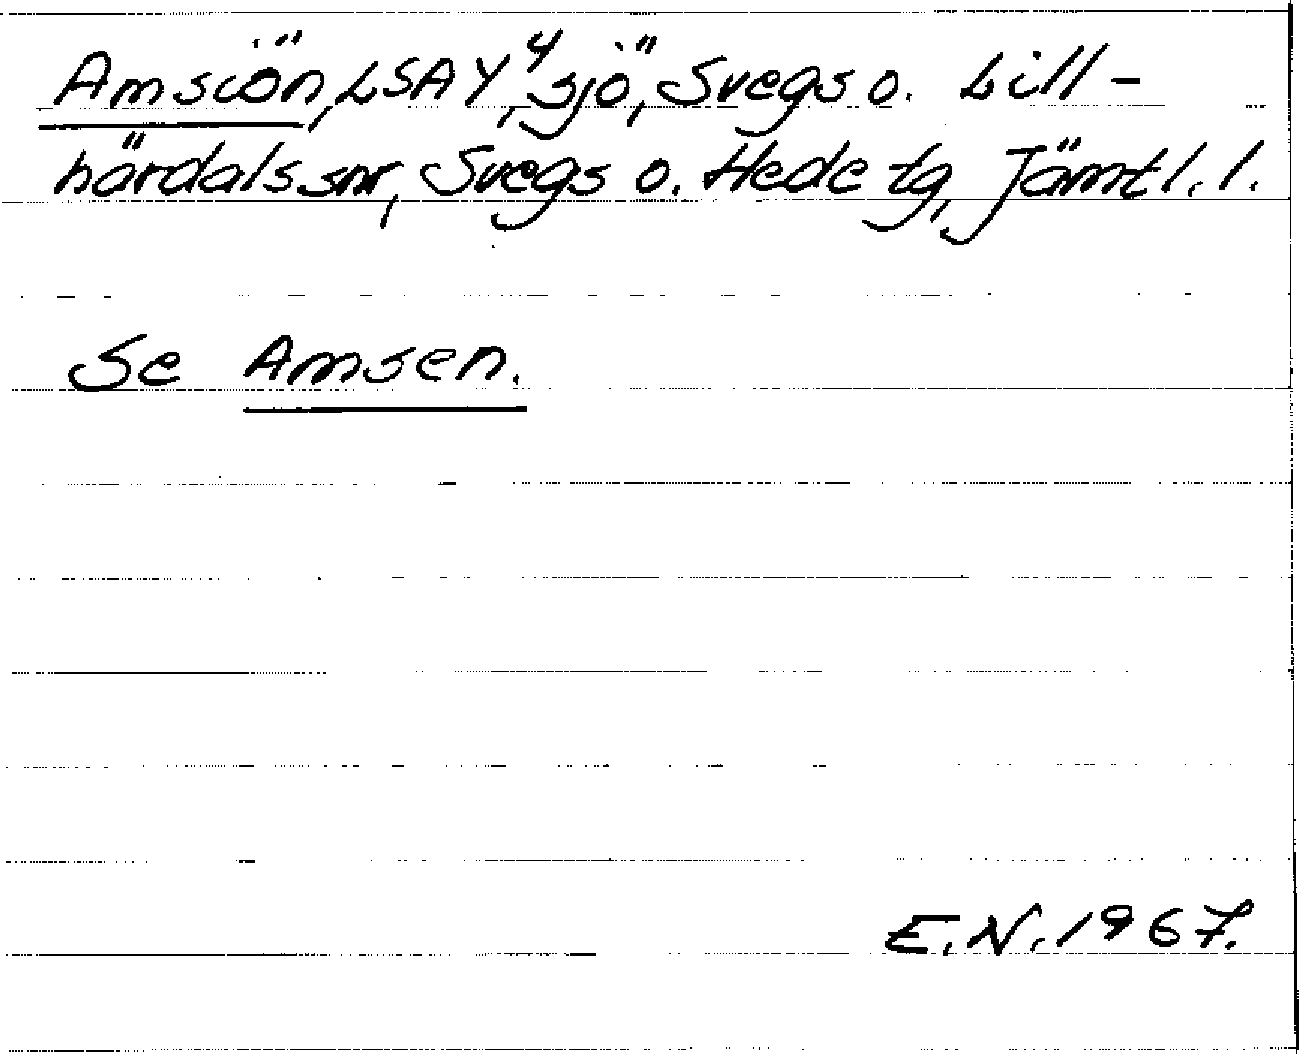 Amsiön, LSA Y⁴, sjö, Svegs o. Lill-
härdals snr, Svegs o. Hede tg, Jämtl. l.
Se Amsen.
E.N. 1967.